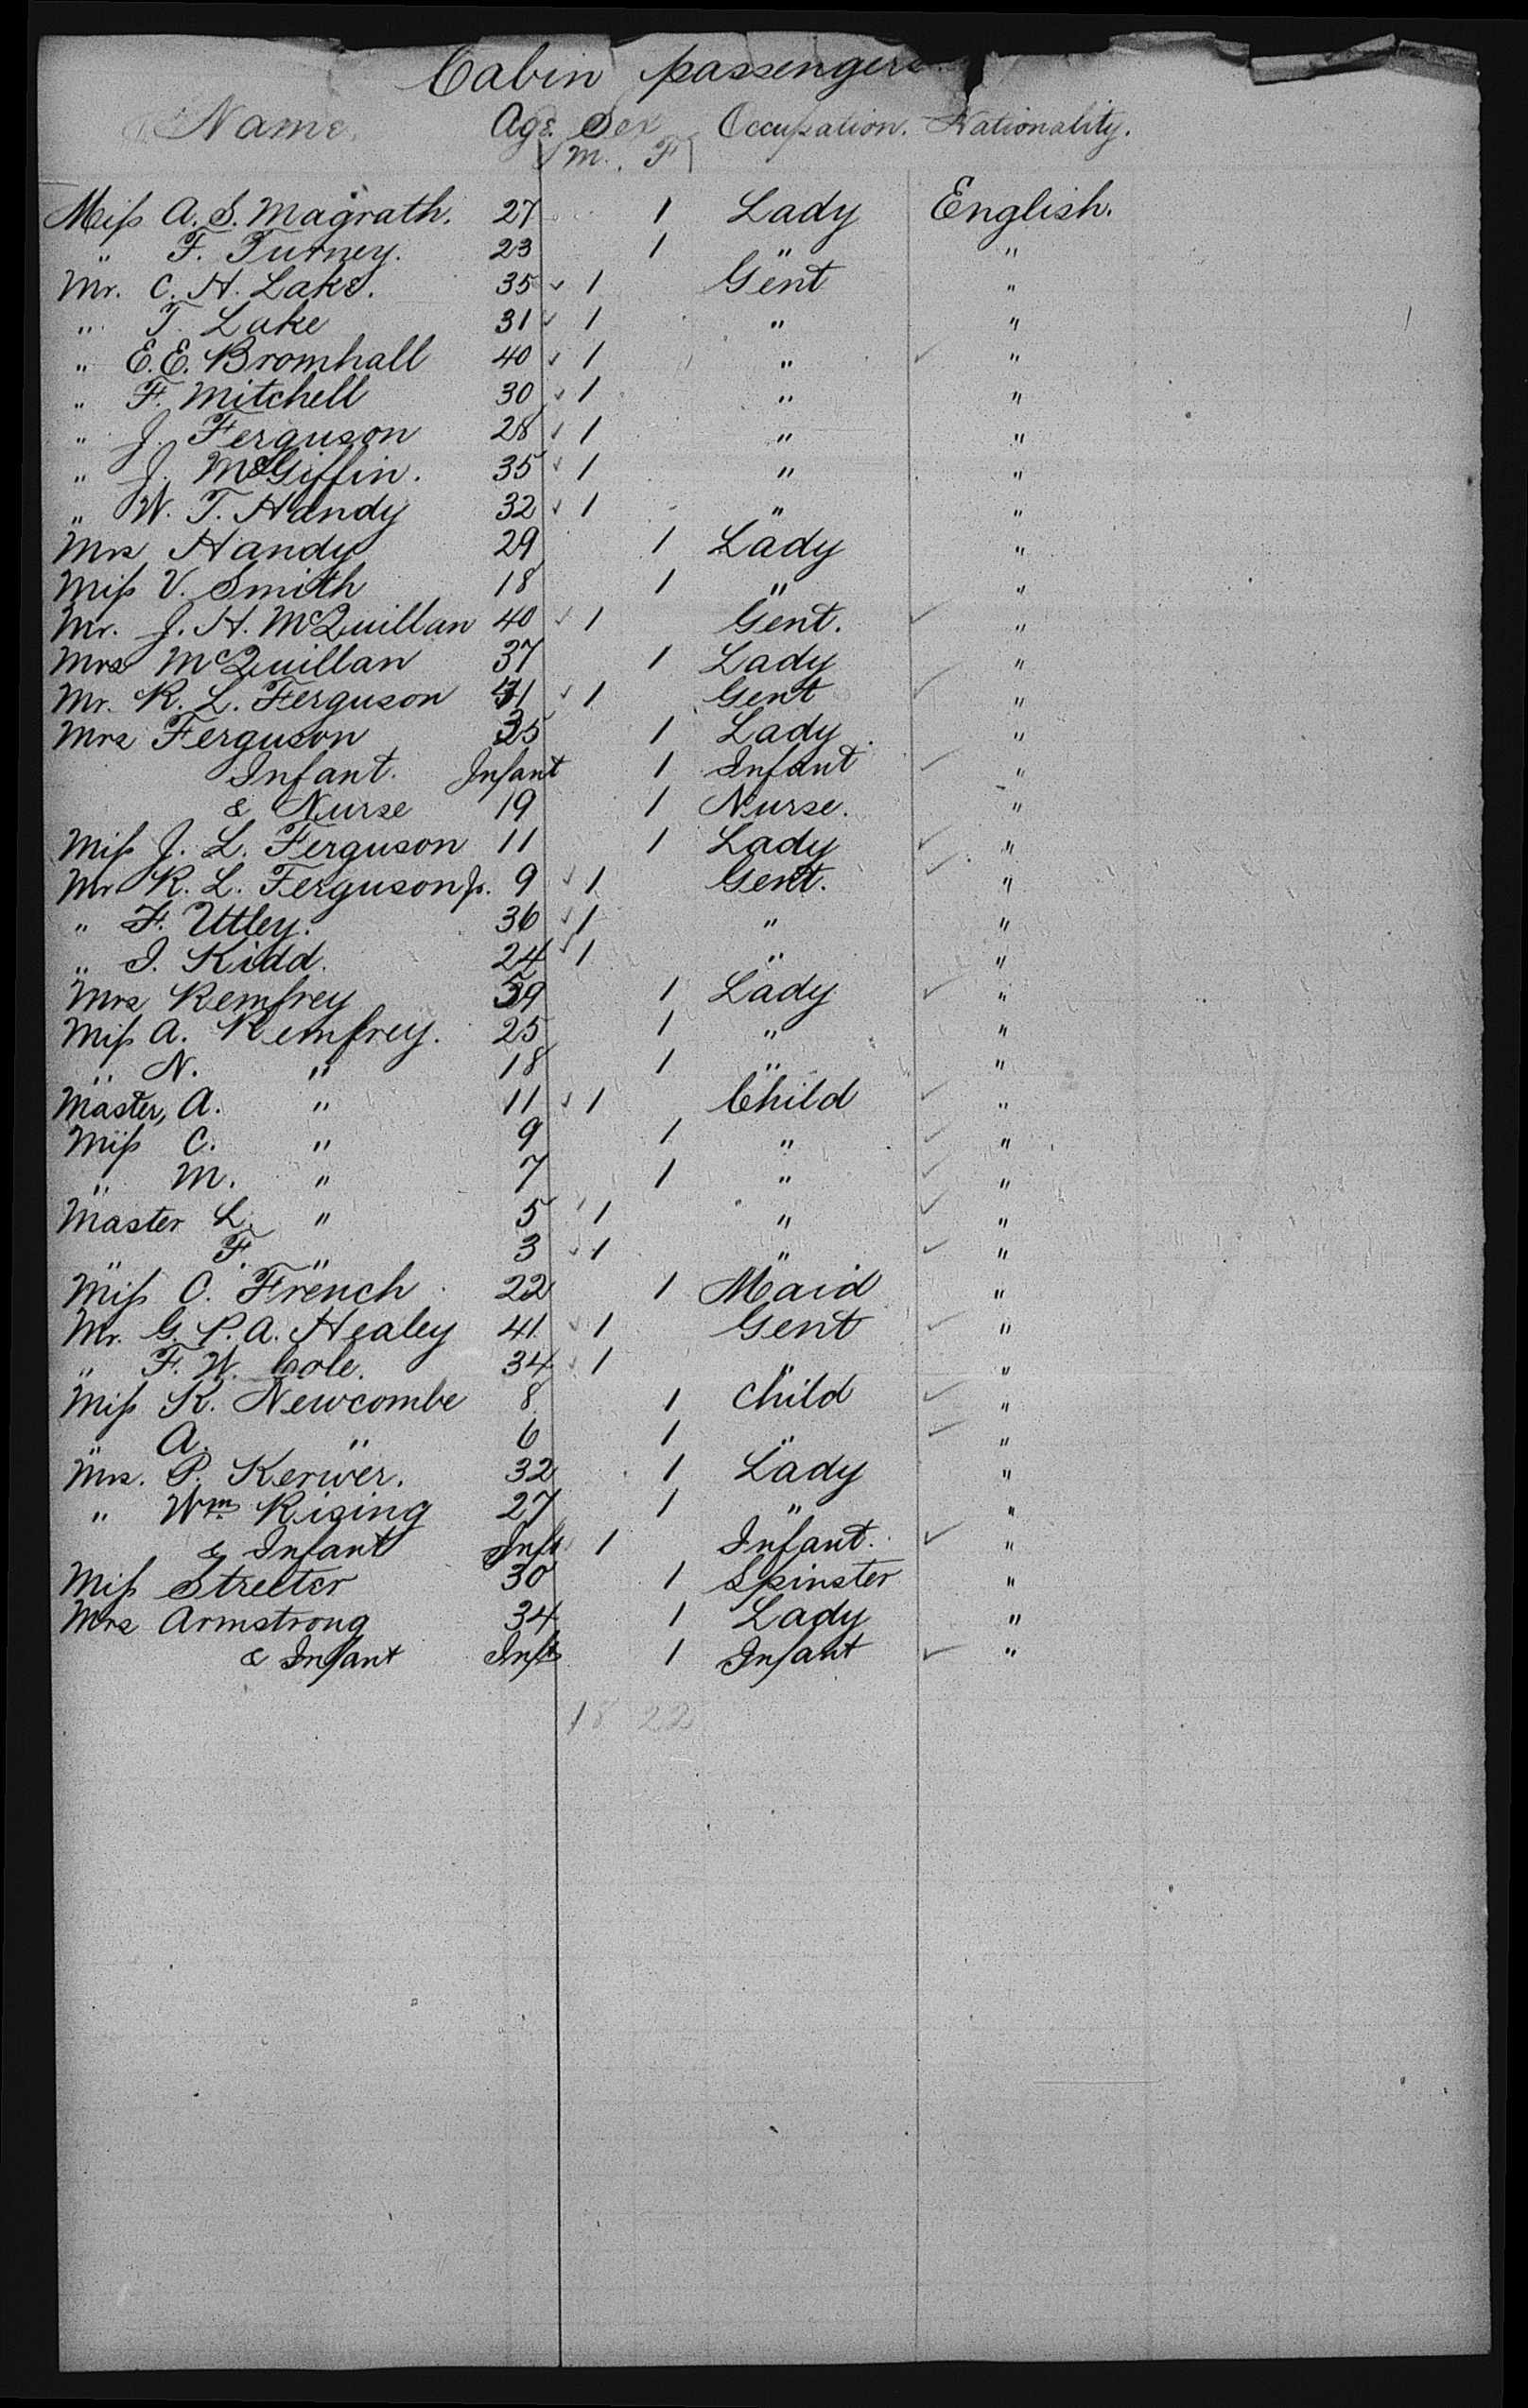 Cabin passengers
Name. Age. Sex Occupation. Nationality.
M. F
Miss A. S. Magrath. 27 1 Lady English.
" F. Turney. 23 1 " "
Mr. C. H. Lake. 35 1 Gent "
" T. Lake 31 1 " "
" E. E. Bromhall 40 1 " "
" F. Mitchell 30 1 " "
" J. Ferguson 28 1 " "
" J. McGiffin. 35 1 " "
" W. T. Handy 32 1 " "
Mrs Handy 29 1 Lady "
Miss V. Smith 18 1 " "
Mr. J. H. McQuillan 40 1 Gent. "
Mrs McQuillan 37 1 Lady "
Mr. R. L. Ferguson 41 1 Gent "
Mrs Ferguson 35 1 Lady "
Infant. Infant 1 Infant "
& Nurse 19 1 Nurse. "
Miss J. L. Ferguson 11 1 Lady "
Mr R. L. Ferguson Jr. 9 1 Gent. "
" F. Uttley. 36 1 " "
" I. Kidd. 24 1 " "
Mrs Remfrey 39 1 Lady "
Miss A. Remfrey. 25 1 " "
" N. " 18 1 " "
Master, A. " 11 1 Child "
Miss C. " 9 1 " "
" M. " 7 1 " "
Master L. " 5 1 " "
" F. " 3 1 " "
Miss C. French 22 1 Maid "
Mr. G. P. A. Healey 41 1 Gent "
" F. W. Cole. 34 1 " "
Miss K. Newcombe 8 1 Child "
" A. " 6 1 " "
Mrs. P. Kerwer. 32 1 Lady "
" Wm. Rising 27 1 " "
& Infant Inft 1 Infant. "
Miss Streeter 30 1 Spinster "
Mrs Armstrong 34 1 Lady "
& Infant Inft 1 Infant "
18 22